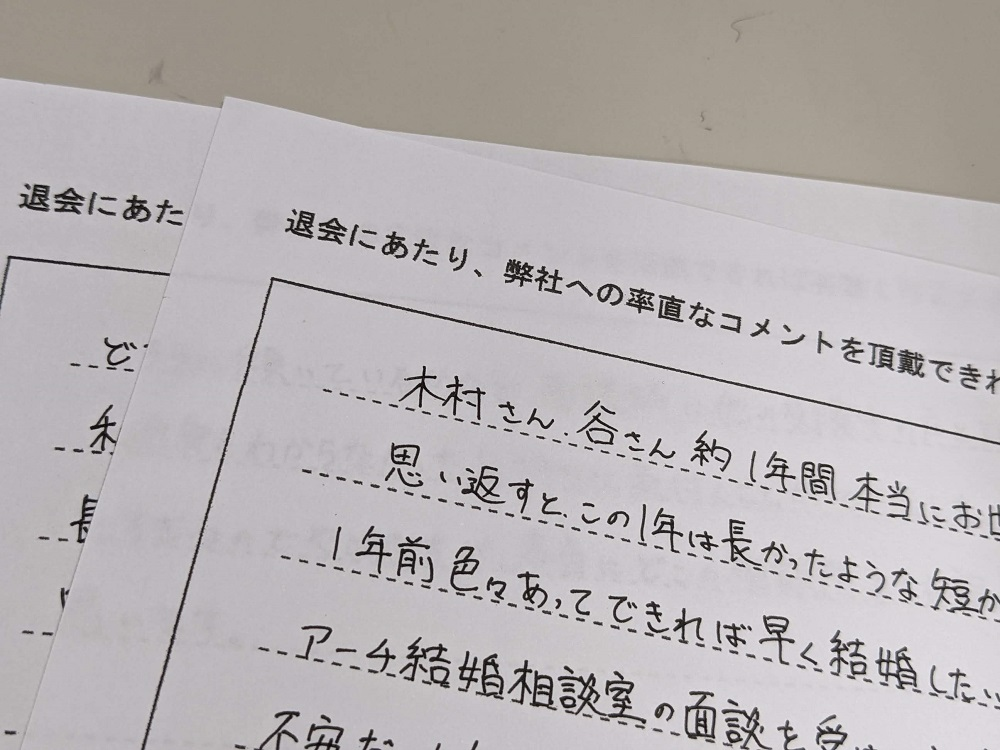 退会にあた
ど
長
退会にあたり、弊社への率直なコメントを頂戴できれ
木村さん 谷さん 約1年間 本当にお世
思い返すと、この1年は長かったような短か
1年前色々あってできれば早く結婚したい
アーチ結婚相談室の面談を受
不安だ